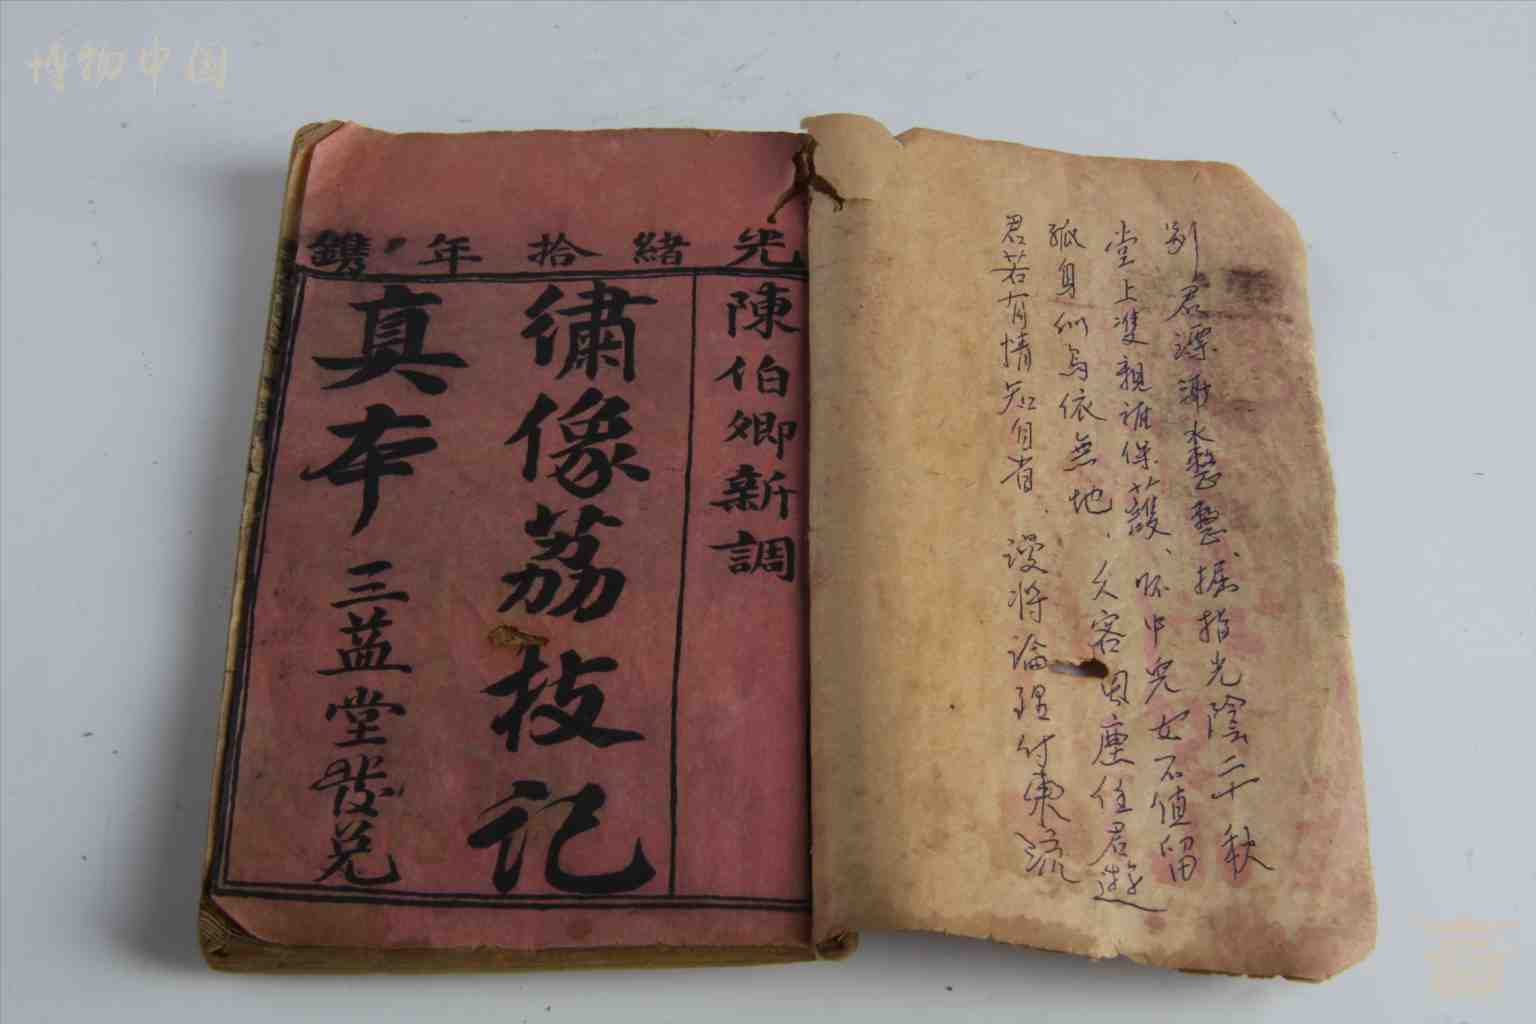 博物中国
別君漂水、掘指光陰二十秋
堂上雙親誰保護、怀中兒女不值留
孤身似鸟依無地、久客塵任君遊
君若有情知自省、漫將論理付東流
光緒拾年鐫
陳伯卿新調
繡像荔枝記
真本
三益堂發兑